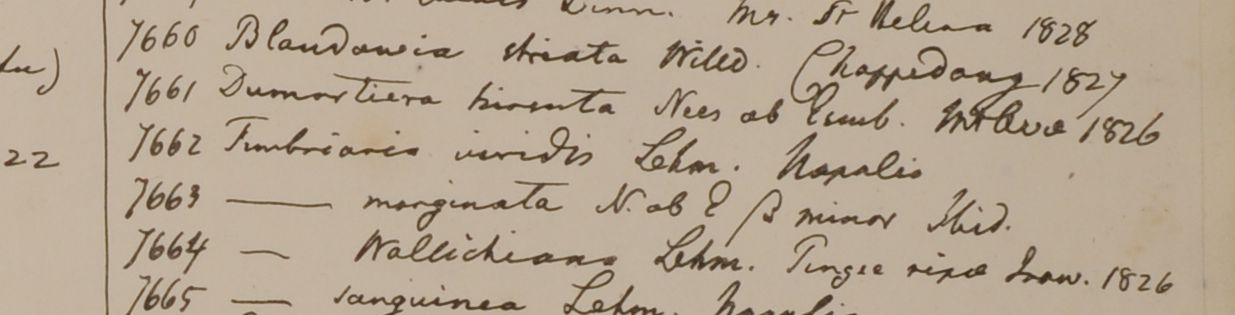 Linn. Mr. St Helena 1828
7660 Blandowia striata Willd. Chappedong 1827
tu)
7661 Dumortiera hirsuta Nees ab Esenb. Mt Ava 1826
7662 Fimbriaria viridis Lehm. Napalia
22
7663 —— marginata N. ab E β minor Ibid.
7664 — Wallichiana Lehm. ripa Iraw. 1826
7665 — sanguinea Lehm. Napalia